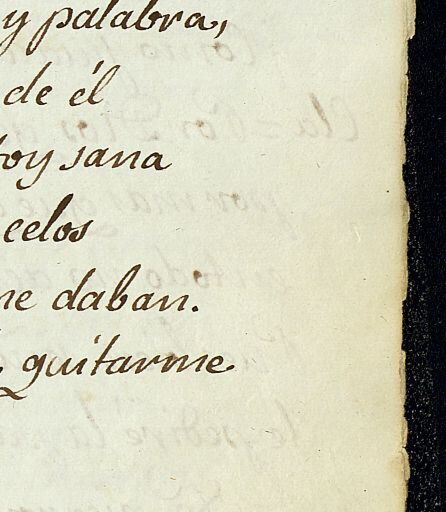 y palabra,
de él
toy sana
celos
me daban.
quitarme